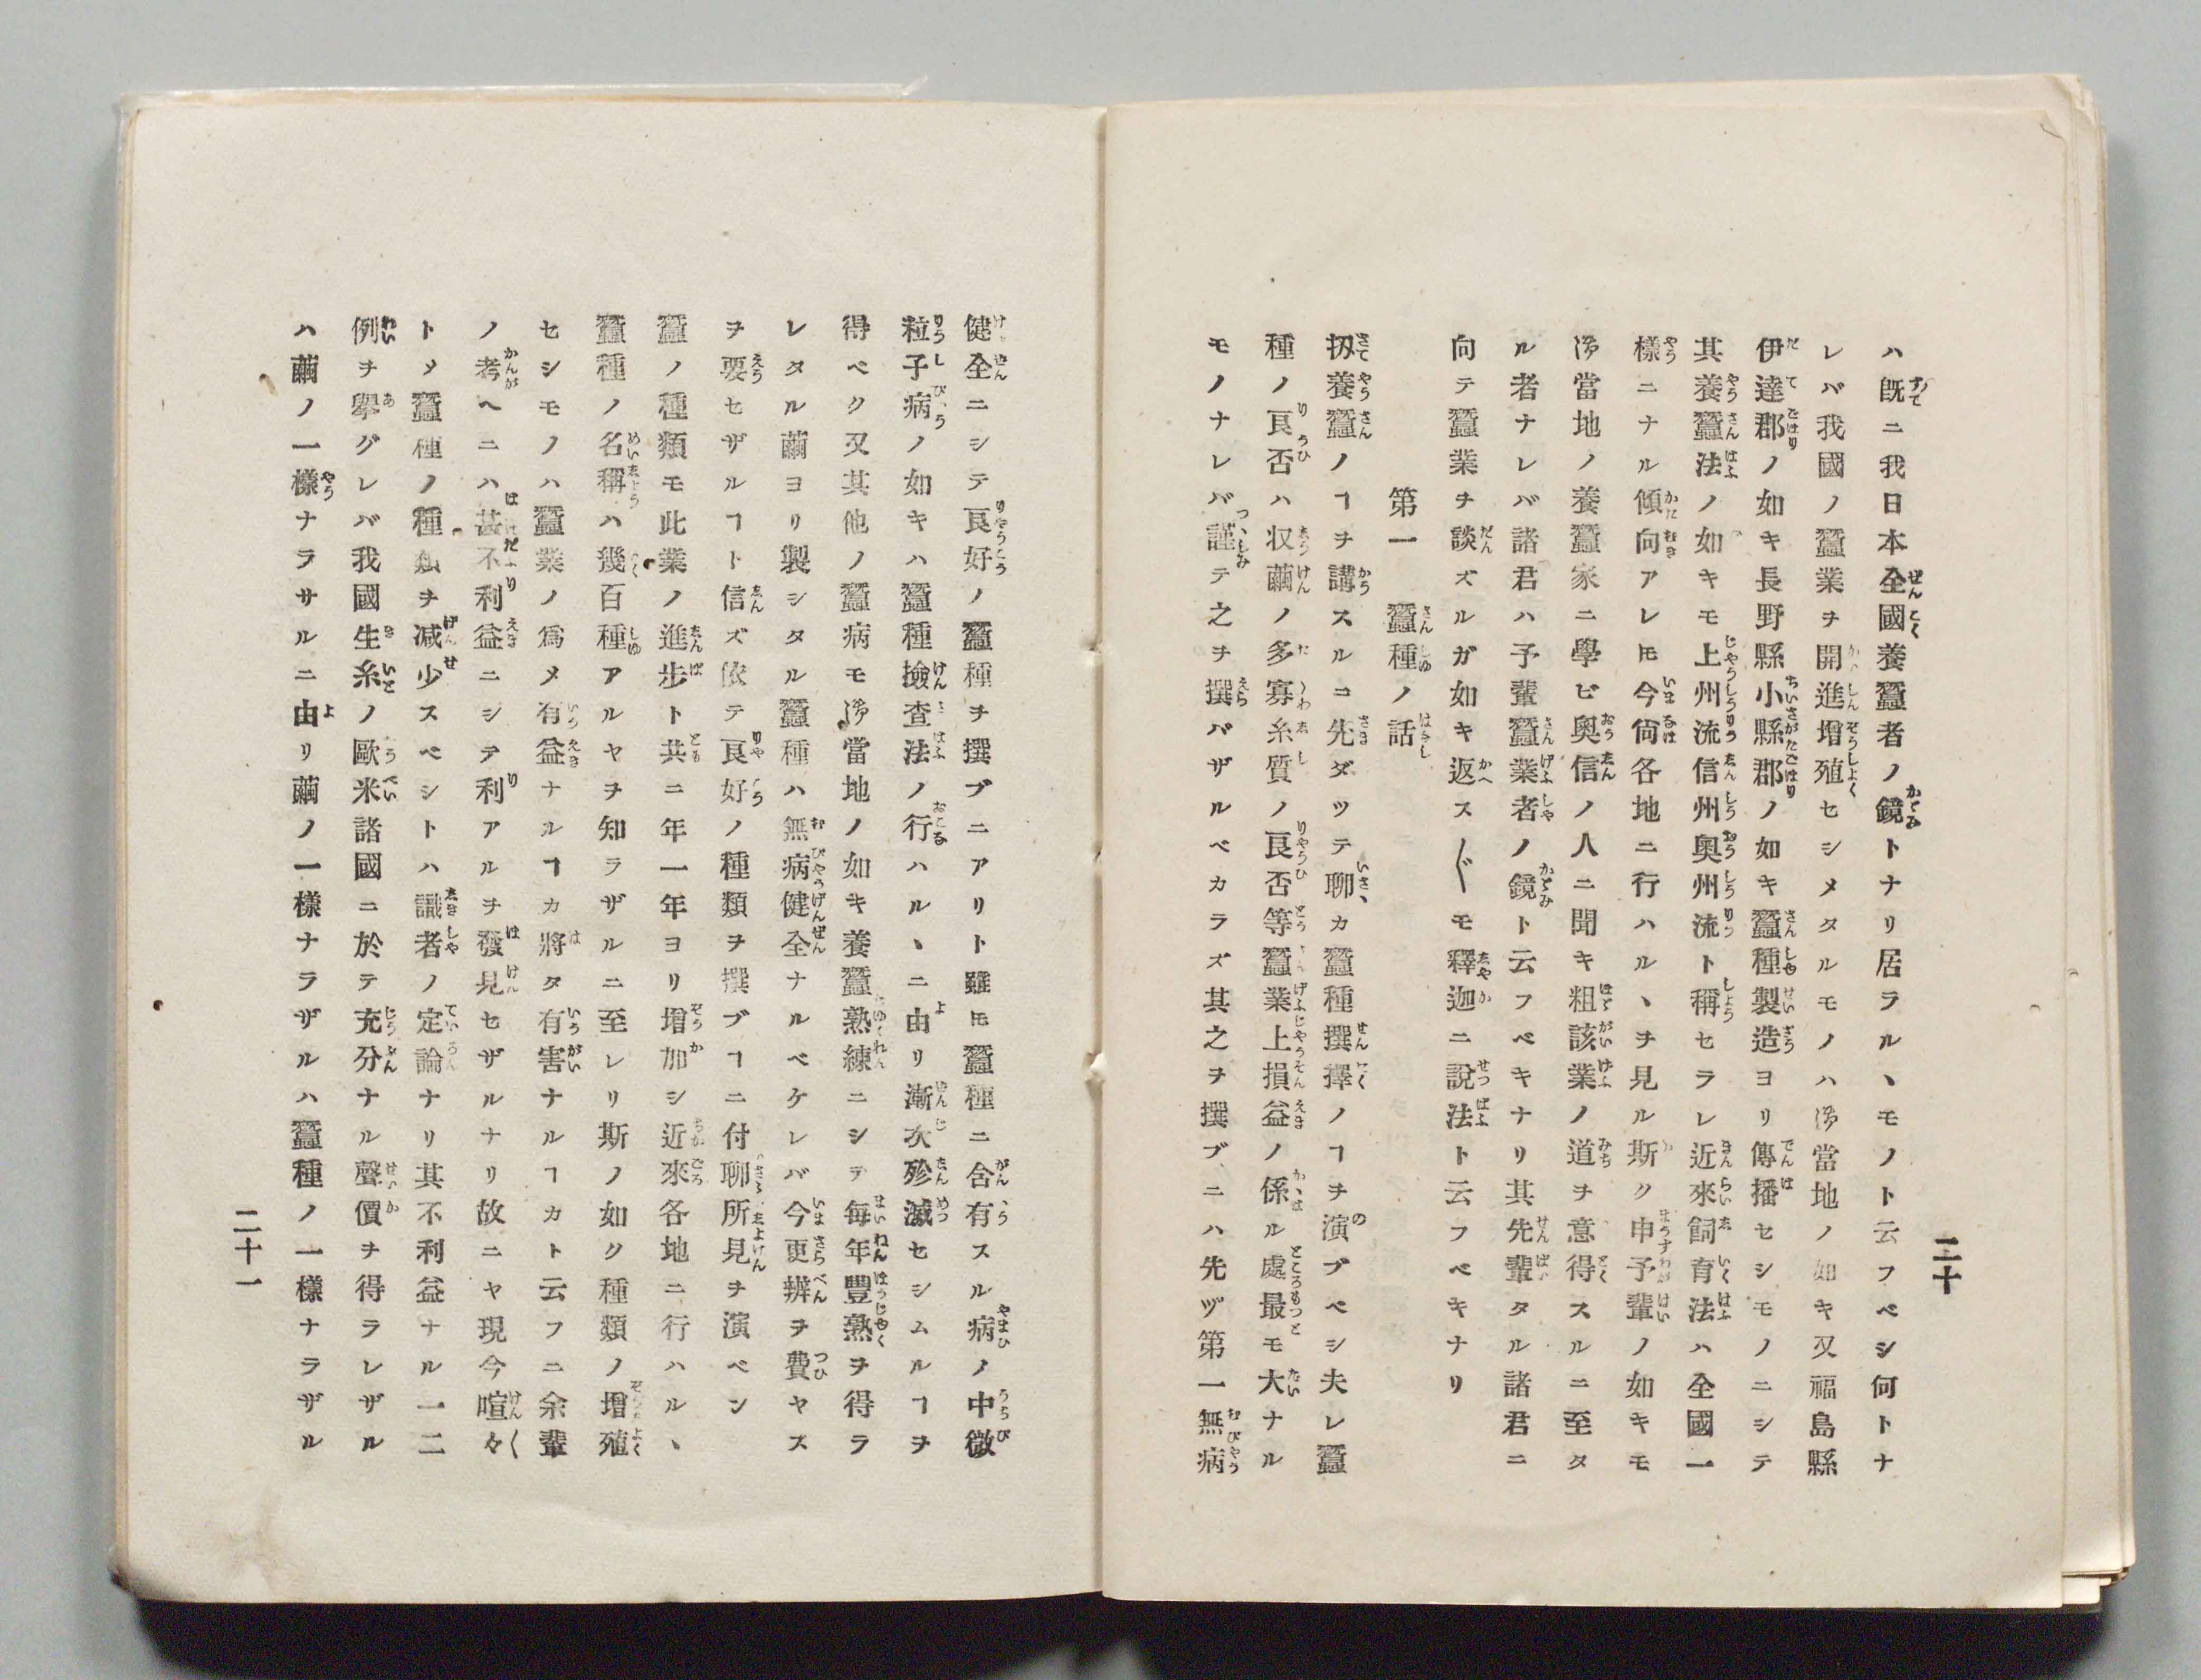 二十
ハ既ニ我日本全國養蠶者ノ鏡トナリ居ラルヽモノト云フベシ何トナ
レバ我國ノ蠶業ヲ開進增殖セシメタルモノハ御當地ノ如キ又福島縣
伊達郡ノ如キ長野縣小縣郡ノ如キ蠶種製造ヨリ傳播セシモノニシテ
其養蠶法ノ如キモ上州流信州奧州流ト稱セラレ近來飼育法ハ全國一
樣ニナル傾向アレ𪜈今尙各地ニ行ハルヽヲ見ル斯ク申予輩ノ如キモ
御當地ノ養蠶家ニ學ビ奧信ノ人ニ聞キ粗該業ノ道ヲ意得スルニ至タ
ル者ナレバ諸君ハ予輩蠶業者ノ鏡ト云フベキナリ其先輩タル諸君ニ
向テ蠶業ヲ談ズルガ如キ返ス〲モ釋迦ニ說法ト云フベキナリ
第一　蠶種ノ話
扨養蠶ノヿヲ講スルニ先ダツテ聊カ蠶種撰擇ノヿヲ演ブベシ夫レ蠶
種ノ良否ハ収繭ノ多寡糸質ノ良否等蠶業上損益ノ係ル處最モ大ナル
モノナレバ謹テ之ヲ撰バザルベカラズ其之ヲ撰ブニハ先ヅ第一無病
健全ニシテ良好ノ蠶種ヲ撰ブニアリト雖𪜈蠶種ニ含有スル病ノ中微
粒子病ノ如キハ蠶種撿査法ノ行ハルヽニ由リ漸次殄滅セシムルヿヲ
得ベク又其他ノ蠶病モ御當地ノ如キ養蠶熟練ニシテ每年豐熟ヲ得ラ
レタル繭ヨリ製シタル蠶種ハ無病健全ナルベケレバ今更辨ヲ費ヤス
ヲ要セザルヿト信ズ依テ良好ノ種類ヲ撰ブヿニ付聊所見ヲ演ベン
蠶ノ種類モ此業ノ進步ト共ニ年一年ヨリ增加シ近來各地ニ行ハルヽ
蠶種ノ名稱ハ幾百種アルヤヲ知ラザルニ至レリ斯ノ如ク種類ノ增殖
セシモノハ蠶業ノ爲メ有益ナルヿカ將タ有害ナルヿカト云フニ余輩
ノ考ヘニハ甚不利益ニシテ利アルヲ發見セザルナリ故ニヤ現今喧々
トメ蠶種ノ種類ヲ減少スベシトハ識者ノ定論ナリ其不利益ナル一二
例ヲ擧グレバ我國生糸ノ歐米諸國ニ於テ充分ナル聲價ヲ得ラレザル
ハ繭ノ一樣ナラサルニ由リ繭ノ一樣ナラザルハ蠶種ノ一樣ナラザル
二十一